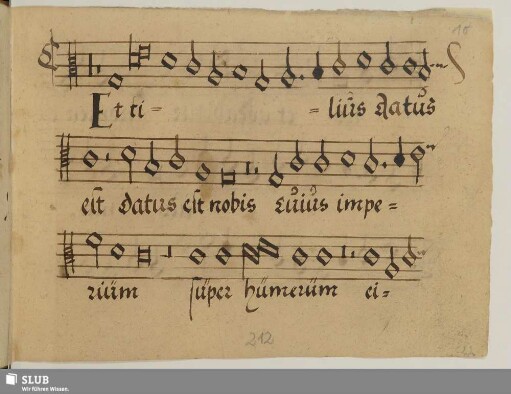 18
Et ti- -lius datus
est datus est nobis cuius impe-
rium super humerum ei-
212
SLUB
Wir führen Wissen.